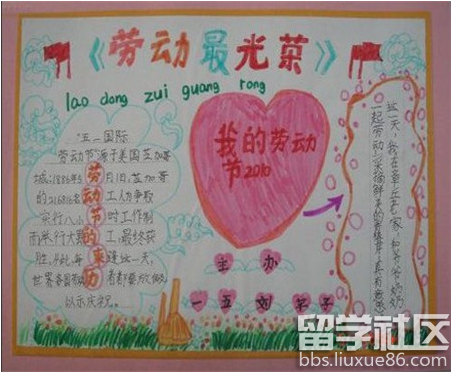 《劳动最光荣》
lao dong zui guang rong
"五一国际
劳动节"源于美国芝加哥
城,1886年5月1日,芝加哥
的216816名工人争取
实行八小时工作制
而举行大罢工,最终获
世界各国
以示庆祝。
劳动节的来历
我的劳动
节2010
主办
一五刘子
这一天,我在章丘老家,和爷爷奶奶
一起劳动
留学社区
bbs.liuxue86.com